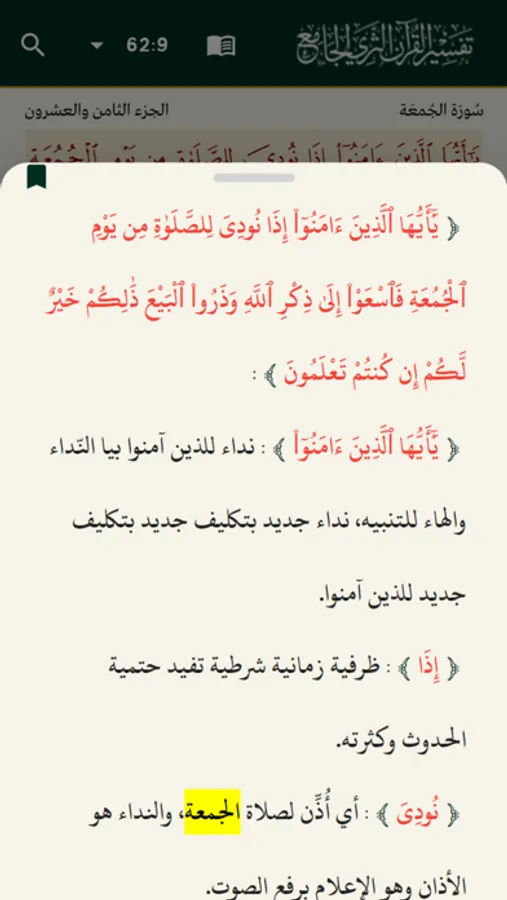 تفسير القرآن الثري الجامع
62:9
سُورَة الجُمعَة
الجزء الثامن والعشرون
يَٰٓأَيُّهَا ٱلَّذِينَ ءَامَنُوٓا۟ إِذَا نُودِىَ لِلصَّلَوٰةِ مِن يَوْمِ ٱلْجُمُعَةِ
﴿ يَٰٓأَيُّهَا ٱلَّذِينَ ءَامَنُوٓا۟ إِذَا نُودِىَ لِلصَّلَوٰةِ مِن يَوْمِ
ٱلْجُمُعَةِ فَٱسْعَوْا۟ إِلَىٰ ذِكْرِ ٱللَّهِ وَذَرُوا۟ ٱلْبَيْعَ ذَٰلِكُمْ خَيْرٌ
لَّكُمْ إِن كُنتُمْ تَعْلَمُونَ ﴾ :
﴿ يَٰٓأَيُّهَا ٱلَّذِينَ ءَامَنُوٓا۟ ﴾ : نداء للذين آمنوا بيا النّداء
والهاء للتنبيه، نداء جديد بتكليف جديد بتكليف
جديد للذين آمنوا.
﴿ إِذَا ﴾ : ظرفية زمانية شرطية تفيد حتمية
الحدوث وكثرته.
﴿ نُودِىَ ﴾ : أي أُذِّن لصلاة الجمعة، والنداء هو
الأذان وهو الإعلام برفع الصوت.